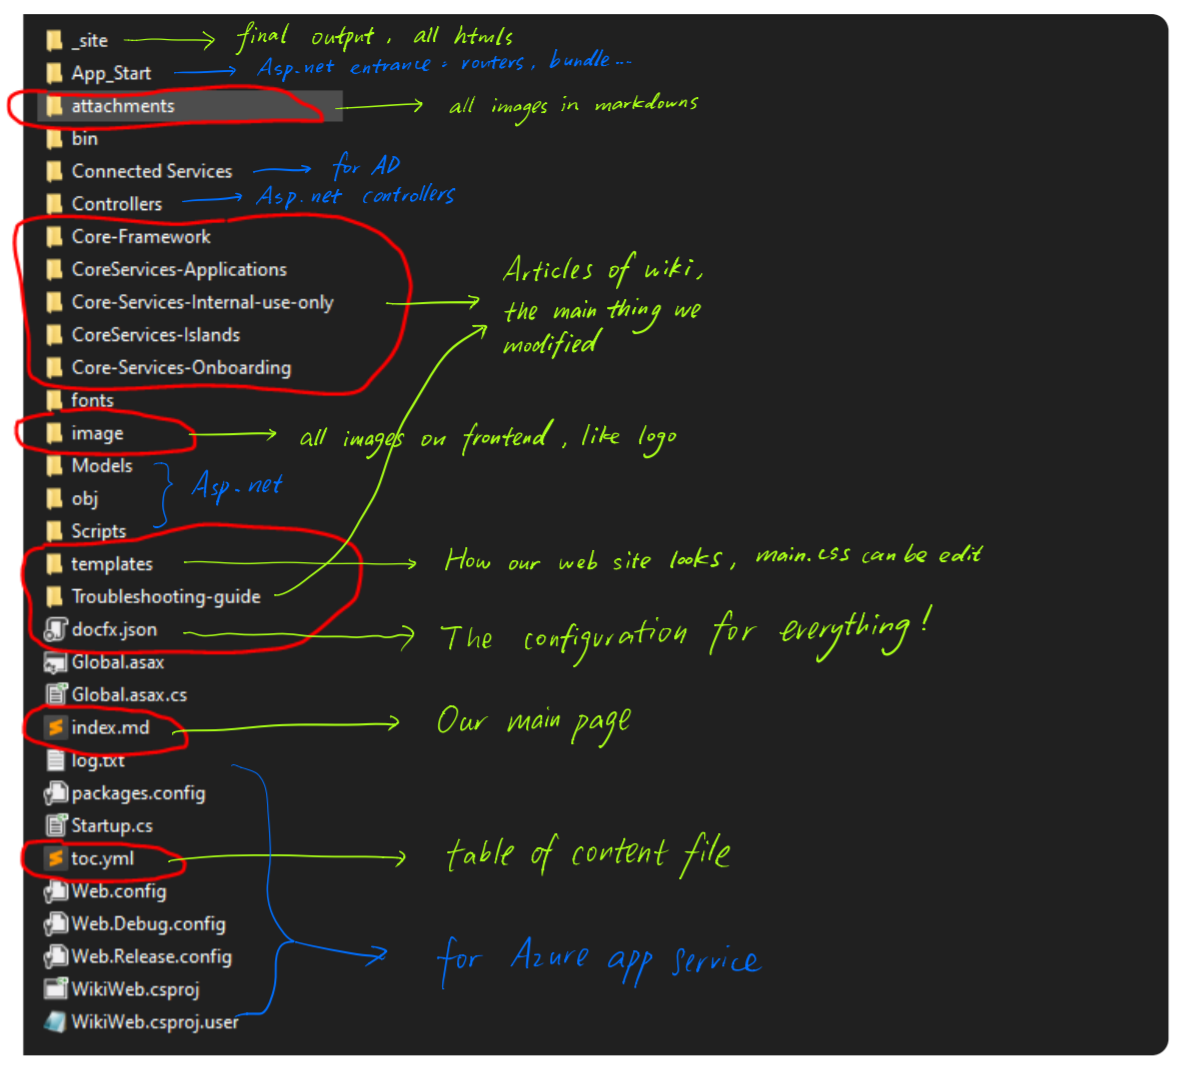 _site final output, all htmls
App_Start Asp.net entrance: routers, bundle...
attachments all images in markdowns
bin
Connected Services for AD
Controllers Asp.net controllers
Core-Framework
CoreServices-Applications
Core-Services-Internal-use-only
CoreServices-Islands
Core-Services-Onboarding
Articles of wiki,
the main thing we
modified
fonts
image all images on frontend, like logo
Models
obj
Scripts
Asp.net
templates How our web site looks, main.css can be edit
Troubleshooting-guide
docfx.json The configuration for everything!
Global.asax
Global.asax.cs
index.md Our main page
log.txt
packages.config
Startup.cs
toc.yml table of content file
Web.config
Web.Debug.config
Web.Release.config
WikiWeb.csproj
WikiWeb.csproj.user
for Azure app service